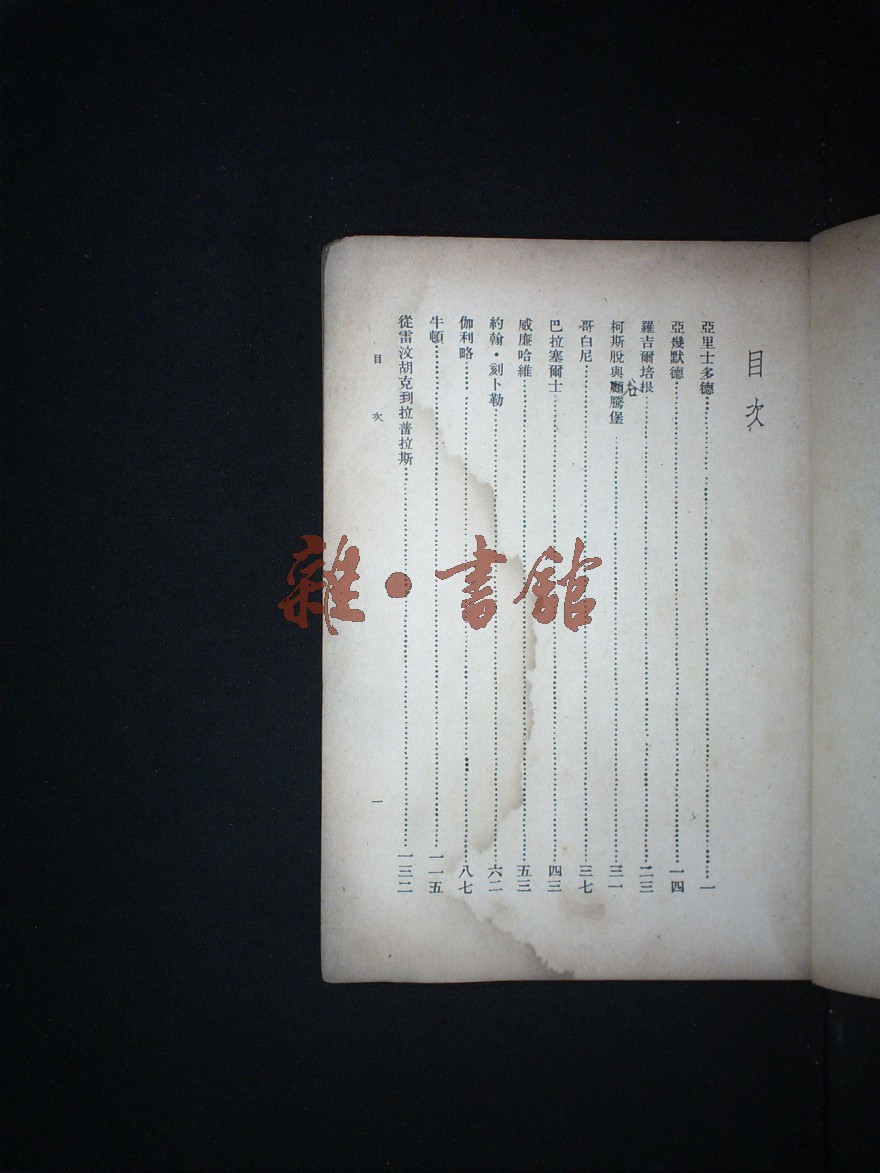 目次
亞里士多德……一
亞幾默德……一四
羅吉爾培根……二三
柯斯脫與顧騰堡……三一
谷
哥白尼……三七
巴拉塞爾士……四三
威廉哈維……五三
約翰·刻卜勒……六二
伽利略……八七
牛頓……一一五
從雷汶胡克到拉普拉斯……一三二
目次
一
雜·書館